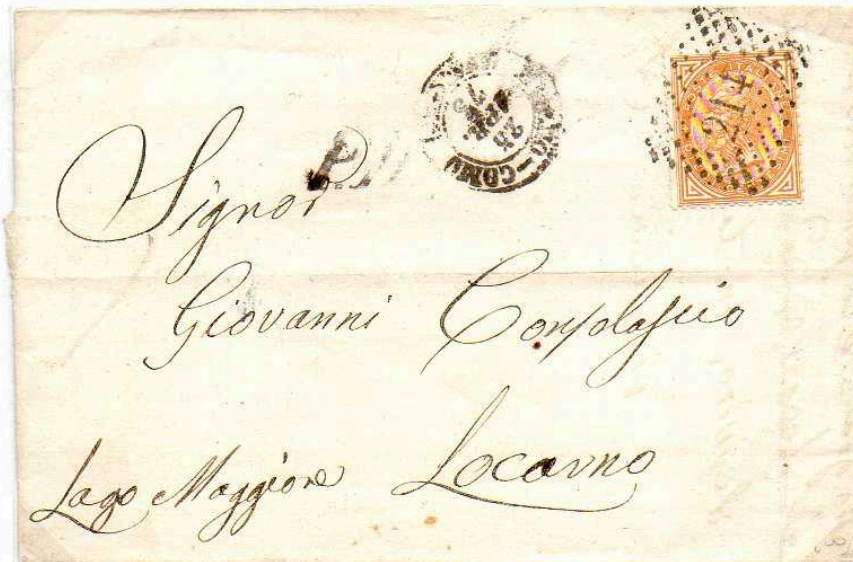 COMO
25
APR
214
Signor
Giovanni Consolascio
Lago Maggiore Locarno